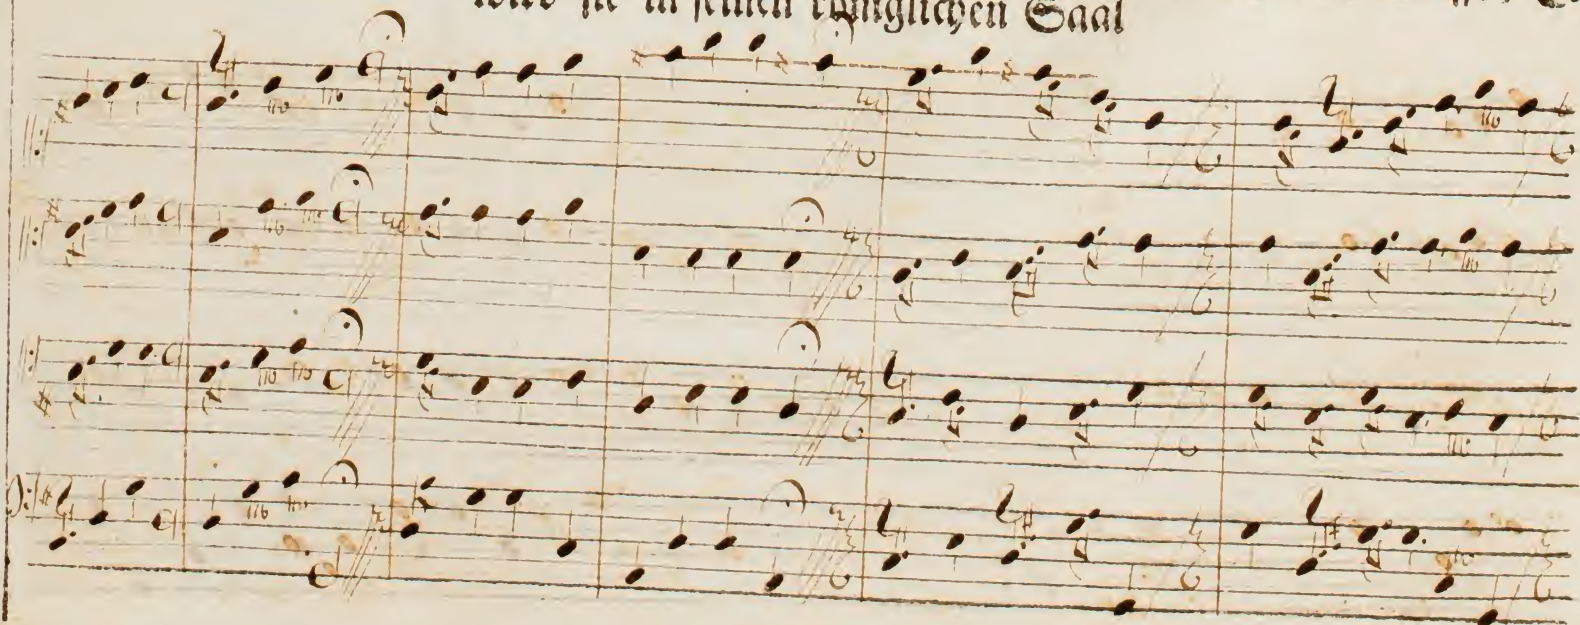 wird sie in seinen königlichen Saal